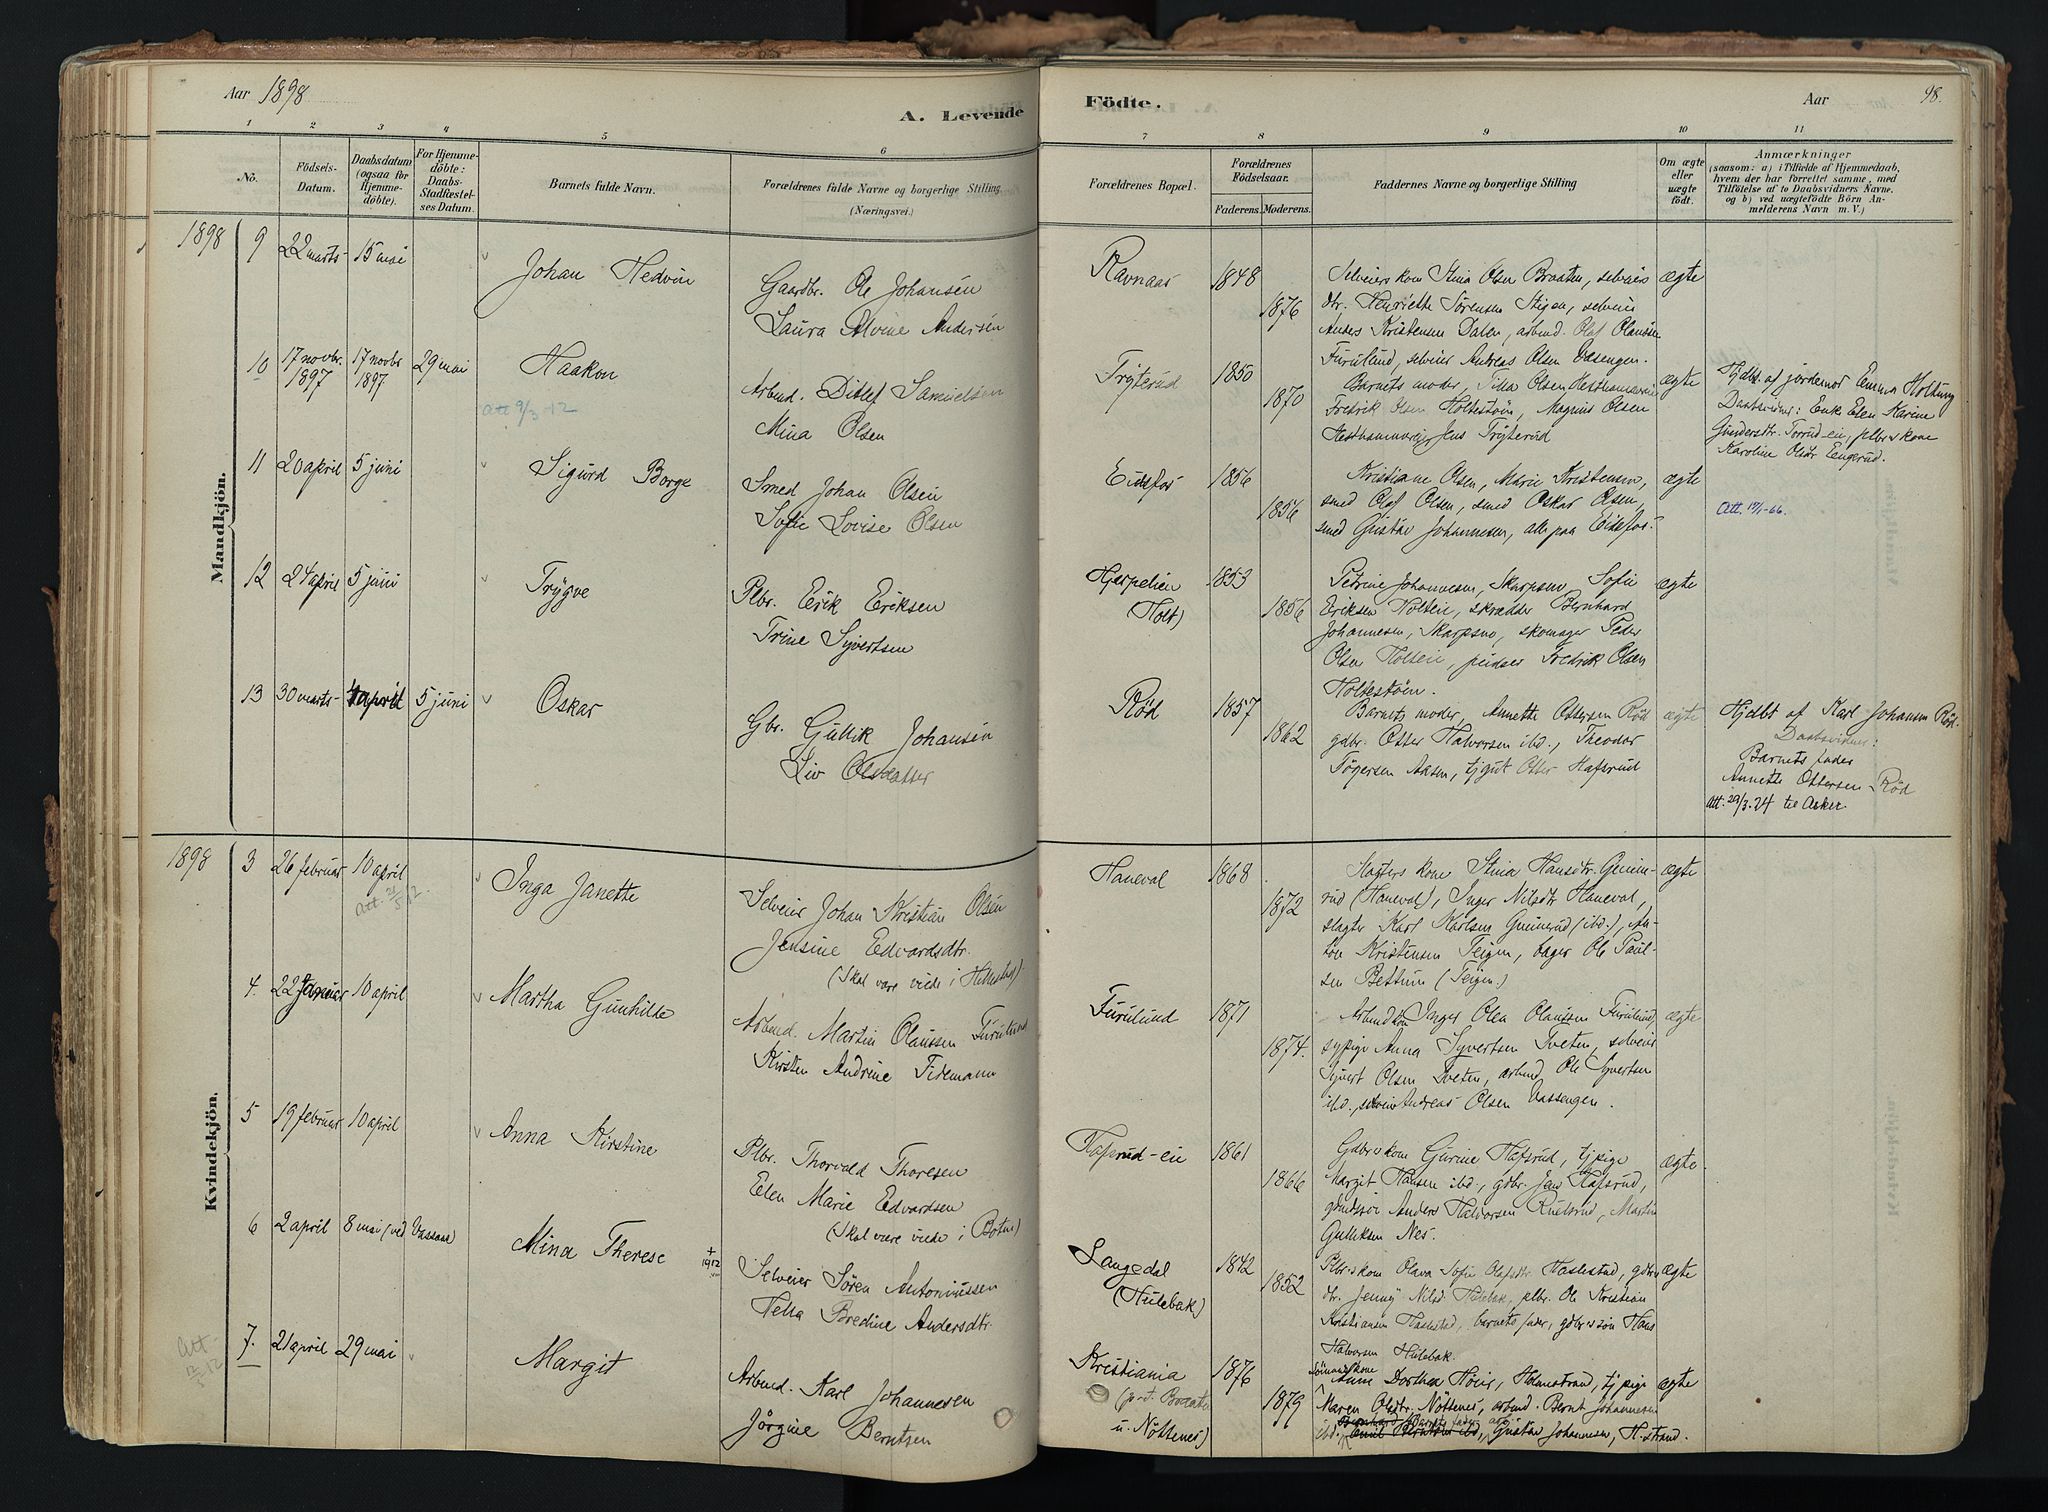 Aar 1898
A. Levende
Födte.
Aar
98.
1 2 3 4 5 6 7 8 9 10 11
No.
Födsels-Datum.
Daabsdatum (ogsaa for Hjemme-döbte).
For Hjemme-döbte: Daabs-Stadfæstel-ses Datum.
Barnets fulde Navn.
Forældrenes fulde Navne og borgerlige Stilling. (Næringsvei.)
Forældrenes Bopæl.
Forældrenes Födselsaar.
Faderens. Moderens.
Faddernes Navne og borgerlige Stilling
Om ægte eller uægte födt.
Anmærkninger
(saasom: a) i Tilfælde af Hjemmedaab,
hvem der har forrettet samme, med
Tilföielse af to Daabsvidners Navne.
og b) ved uægtefödte Börn An-
melderens Navn m. V.)
Mandkjön.
1898 9 22 marts 15 mai Johan Hedvin
Gaardbr. Ole Johansen
Laura Alvine Andersen
Ravnaas 1848 1876
Selveiers kone Stina Olsen Braaten, selveiers
dtr. Henriette Sörensen Stigen, selveier
Anders Kristensen Dalen, arbmd. Olaf Olaussen
Furulund, selveier Andreas Olsen Vassengen.
ægte
10 17 novbr. 1897 17 novbr 1897 29 mai Haakon
Att 9/3-12
Arbmd. Ditlef Samuelsen
Mina Olsen
Tryterud 1850 1870
Barnets moder, Tilla Olsen Hesthammeren
Fredrik Olsen Holtestöen, Magnus Olsen
Hesthammeren, Jens Tryterud
ægte
Hjdbt. af jordemor Emma Holtung
Daabsvidner: Enke Elen Karine
Gundersdtr. Torrud-eie, plbrs kone
Karoline Olsdtr Engerud.
11 20 april 5 juni Sigurd Borge
Smed Johan Olsen
Sofie Lovise Olsen
Eidsfos 1856 1856
Kristiane Olsen, Marie Kristensen,
smed Olaf Olsen, smed Oskar Olsen,
smed Gustav Johannesen, alle paa Eidsfos.
ægte
12 24 april 5 juni Trygve
Plbr. Erik Eriksen
Trine Syvertsen
Hjerpelien (Holt) 1853 1856
Petrine Johannesen, Skarpsno, Sofie
Eriksen Holteie, skrædder Bernhard
Johannesen, Skarpsno, skomager Peder
Olsen Holteie, pudser Fredrik Olsen
Holtestöen.
ægte
13 30 marts 4 april 5 juni Oskar
Gbr. Gullik Johansen
Liv Olsdatter
Röd 1857 1862
Barnets moder, Annette Ottersen Röd
gdbr. Otter Halvorsen ibd., Theodor
Tögersen Aasen, tjgut Otter Hafsrud
ægte
Hjdbt af Karl Johansen Röd.
Daabsvidner:
Barnets fader
Annette Ottersen Röd
Att: 29/3-24 til Asker
Kvindekjön.
1898 3 26 februar 10 april Inga Janette
Att. 21/5 12.
Selveier Johan Kristian Olsen
Jensine Edvardsdtr.
(Skal være viede i Hillestad)
Haneval 1868 1872
kone Stina Hansdtr. Gunne-
rud (Haneval), Inger Nilsdtr Haneval,
slagter Karl Karlsen Gunnerud (ibd.), An-
ton Kristensen Teigen, bager Ole Paul-
sen Bettum (Teigen.)
ægte
4. 22 januar 10 april Martha Gunhilde
Arbmd. Martin Olaussen Furulund
Kirsten Andrine Tidemann
Furulund 1871 1874.
Arbmdkone Inger Olea Olaussen Furulund,
sypige Anna Syvertsen Tveten, selveier
Syvert Olsen Tveten, arbmd Ole Syvertsen
ibd., selveier Andreas Olsen Vassengen.
ægte
5 19 februar 10 april Anna Kirstine
Plbr. Thorvald Thoresen
Elen Marie Edvardsen
(Skal være viede i Botne)
Hafsrud-eie 1861 1866
Gdbrs kone Gurine Hafsrud, tjpige
Margit Hansen ibd., gdbr. Jens Hafsrud,
Anders Halvorsen Ruelsrud, Martin
Gulliksen Nes.
ægte
6 2 april 8 mai (ved Vassaas) Mina Therese + 1912
Selveier Sören Antoniussen
Helle Bredine Andersdtr.
Langedal (Hulebak) 1842 1852
Plbrs kone Olava Sofie Olafsdtr Haslestad, gdbrs
dtr. Jenny Nilsd Hulebak, plbr. Ole Kristian
Kristiansen Haslestad, barnets fader, gdbrs sön Hans
Halvorsen Hulebak.
ægte
Att 12/3-12
7. 21 april 29 mai Margit
Arbmd. Karl Johannesen
Jörgine Berntsen
Kristiania
u. Nöttenes) 1876 1879
Sömandskone
Anne Dorthea Höie, Holmestrand, tjpige
Maren Olsdtr. Nöttenes, arbmd. Bernt Johannesen
ibd., Barnets fader, Gustav Johannesen, H.strand.
ægte